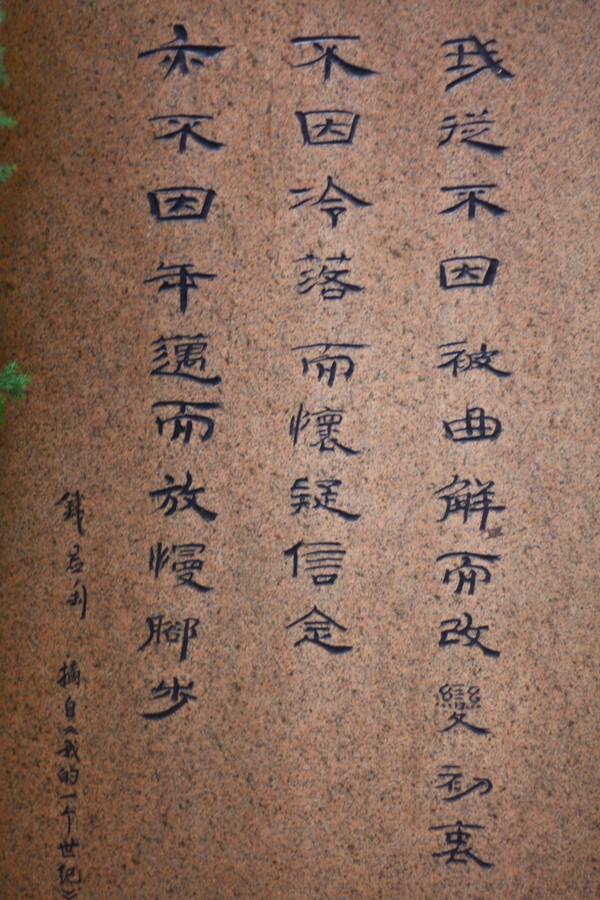 我從不因被曲解而改變初衷
不因冷落而懷疑信念
亦不因年邁而放慢腳步
摘自《我的一个世纪》